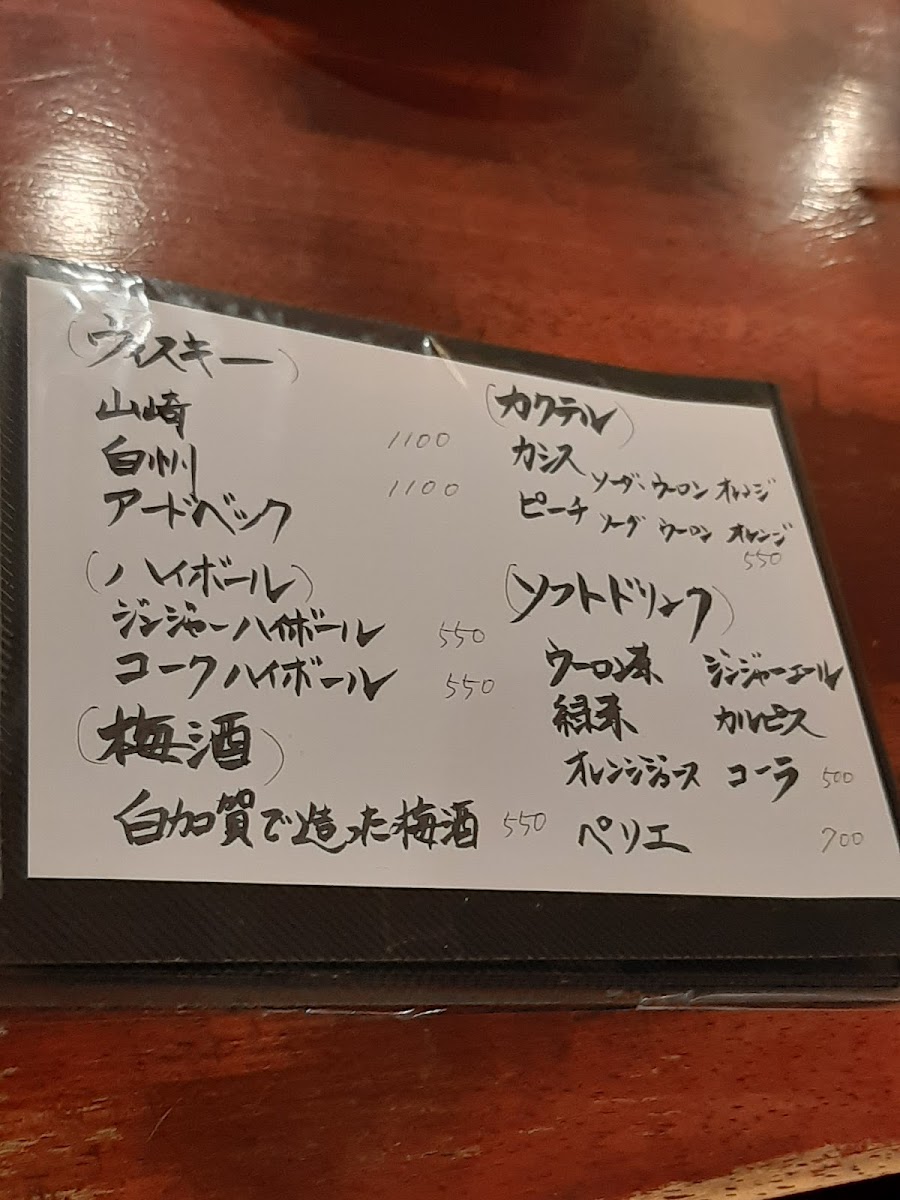 (ウィスキー)
山崎 1100
白州 1100
アードベック
(ハイボール)
ジンジャーハイボール 550
コークハイボール 550
(梅酒)
白加賀で造った梅酒 550
(カクテル)
カシス ソーダ・ウーロン オレンジ
ピーチ ソーダ ウーロン オレンジ
550
(ソフトドリンク)
ウーロン茶 ジンジャーエール
緑茶 カルピス
オレンジジュース コーラ 500
ペリエ 700